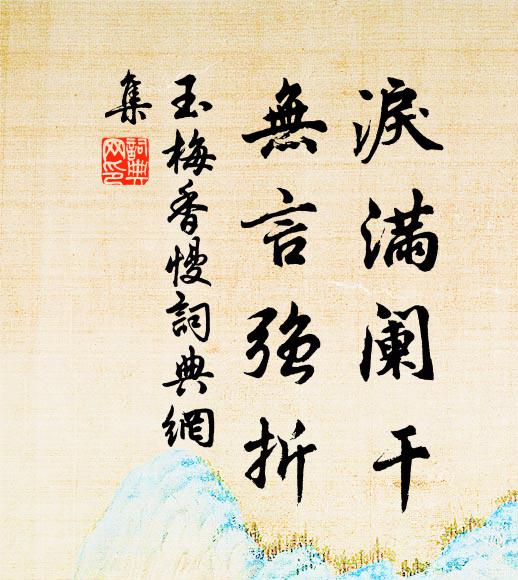 淚滿阑干
無言強折
玉梅香慢詞典網
集
詞典
网印